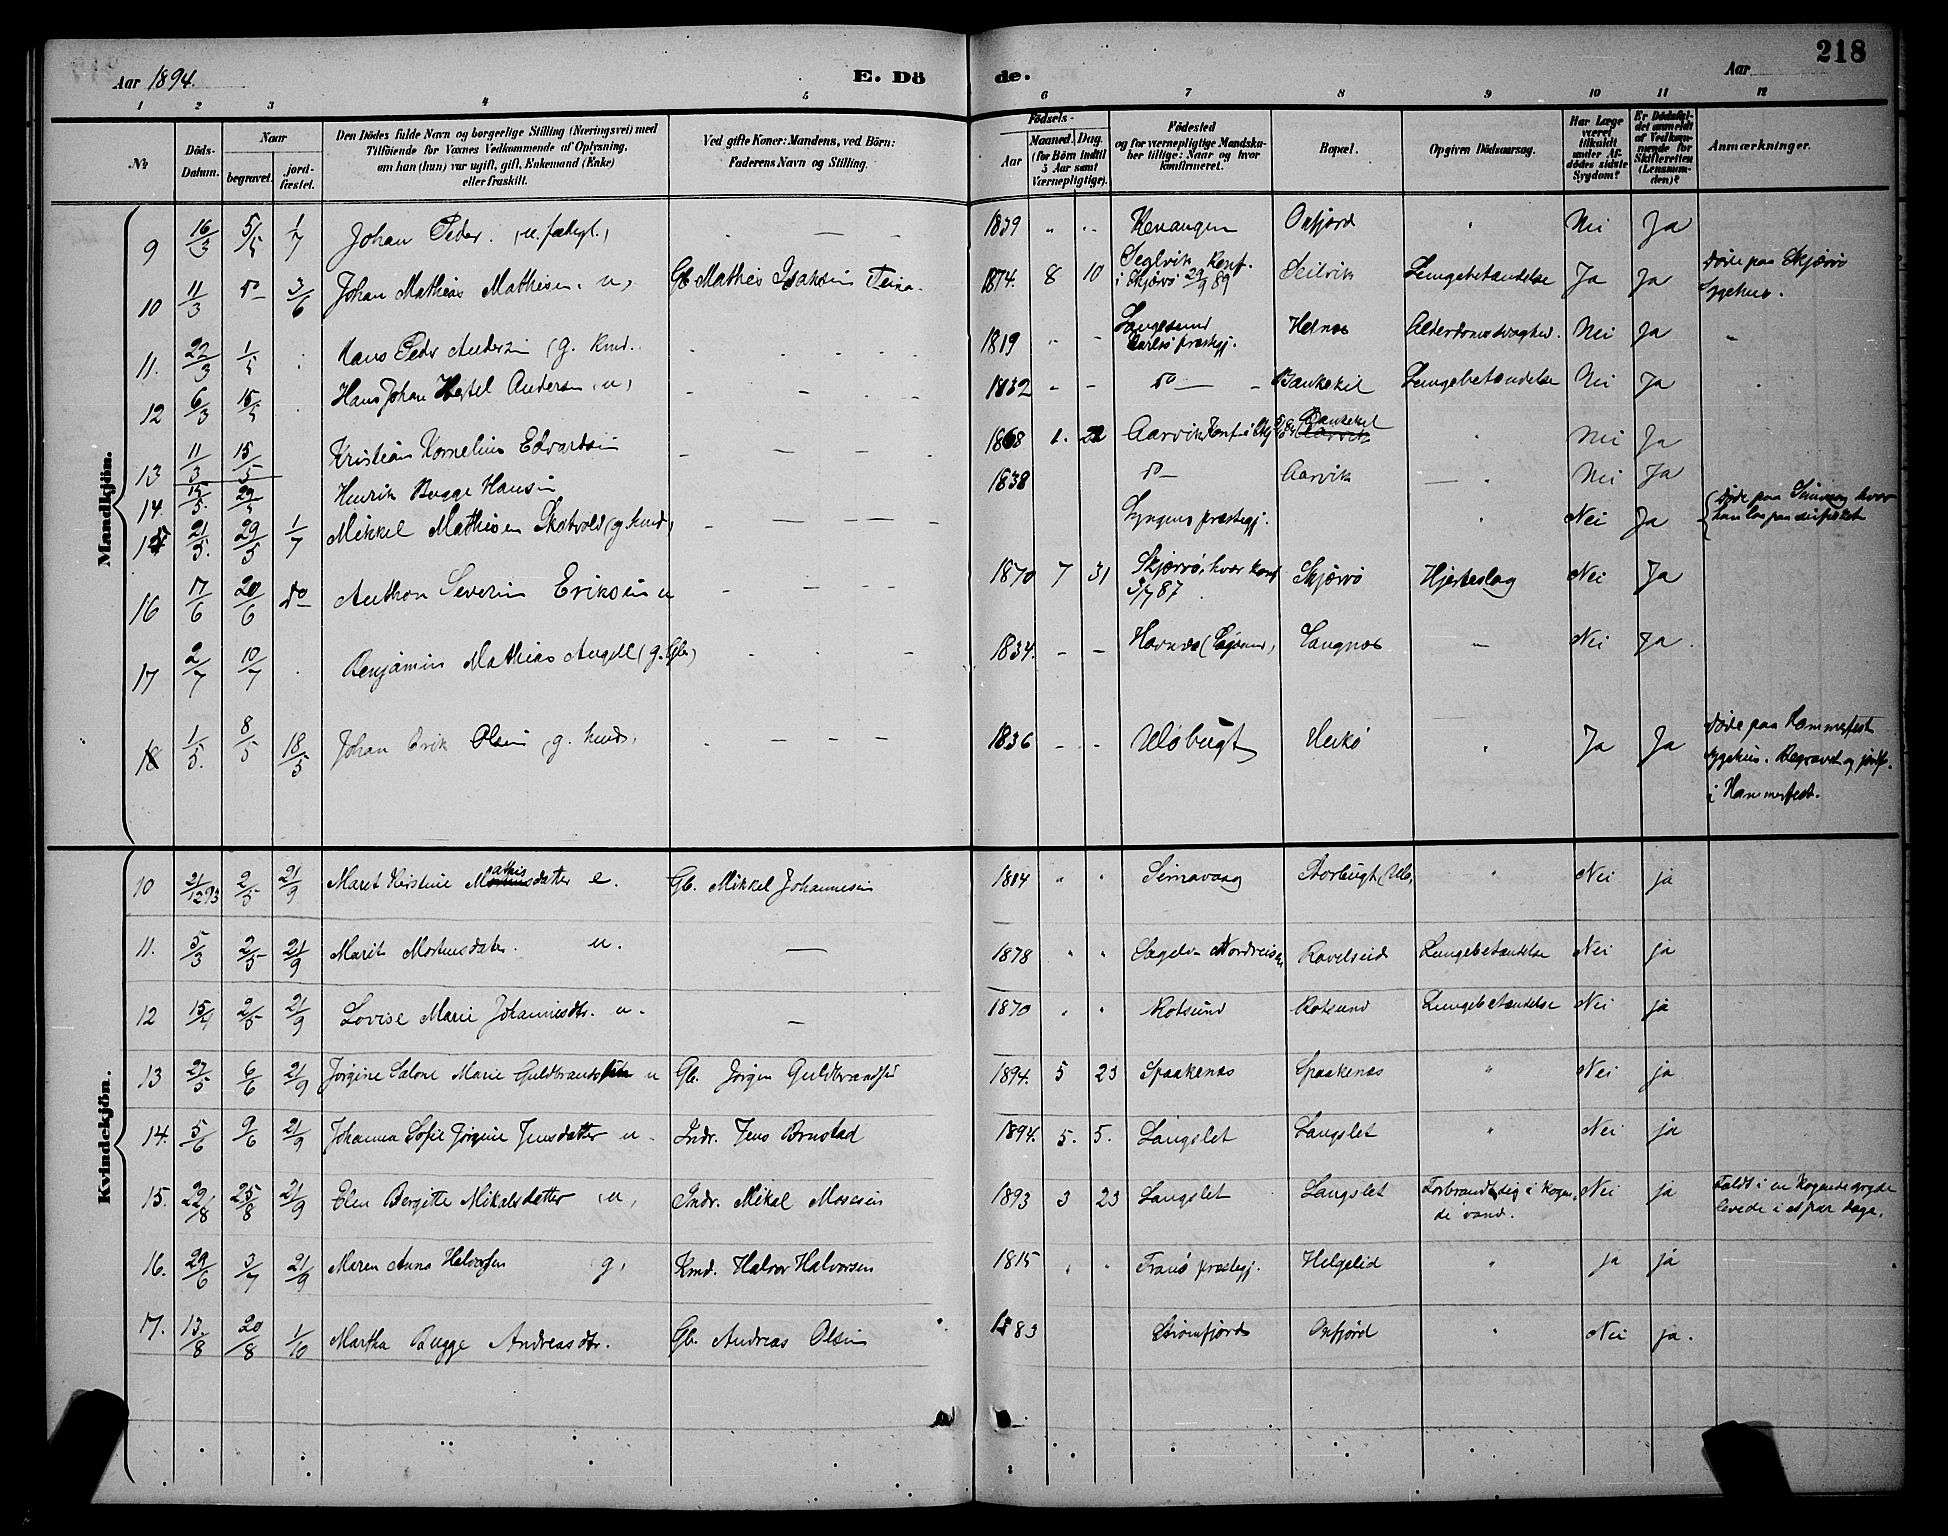 Aar 1894. E. Dö de. Aar 218
1 2 3 4 5 6 7 8 9 10 11 12
№ Döds-Datum. Naar begravet. jordfæstet. Den Dödes fulde Navn og borgerlige Stilling (Næringsvei) med Tilföiende for Voxnes Vedkommende af Oplysning, om han (hun) var ugift, gift, Enkemand (Enke) eller fraskilt. Ved gifte Koner: Mandens, ved Börn: Faderens Navn og Stilling. Födsels- Aar Maaned. Dag. (for Börn indtil 5 Aar samt Værnepligtige). Födested og for værnepligtige Mandskaber tillige: Naar og hvor konfirmeret. Bopæl. Opgiven Dödsaarsag. Har Læge været tilkaldt under Afdödes sidste Sygdom? Er Dödsfaldet anmeldt af Vedkommende for Skifteretten (Lensmanden)? Anmærkninger.
Mandkjön.
9 16/3 5/5 1/7 Johan Peder. 1839 " " Kvænangen Oxfjord " Nei Ja
10 11/3 do 3/6 Johan Mathias Mathisen. u, Gb. Mathis Isaksen 1874. 8 10 Seglvik Konf. i Skjærvö 29/9 89 Seilvik Lungebetændelse Ja Ja Döde paa Skjærvö Sygehus.
11. 22/3 1/5 Hans Peder Andersen (g. Kmd. 1819 " - Langesund Carlsö præstegj. Helnes Alderdomssvaghed. Nei Ja
12 6/3 15/5 Hans Johan Hertel Andersen, u, 1832 - - do Bankekil Lungebetændelse Nei Ja
13 11/3 15/5 Kristian Kornelius Edvardsen 1868 1. 22 Aarvik Konf. i Skj Bankekil Aarvik " Nei Ja
14. 15/5. 29/5 Henrik Bugge Hansen 1838 do Aarvik " Nei Ja
15 21/5. 29/5 1/7 Mikkel Mathisen Skotvold (g. kmd, Lyngens præstegj. " Nei Ja
16 17/6 20/6 do Anthon Severin Eriksen u 1870 7 31 Skjærvö, hvor konf 3/7 87. Skjærvö Hjerteslag Nei Ja
17 2/7 10/7 Benjamin Mathias Angell (g. Gb.) 1834. - - Havnnes Langnes - Nei Ja.
18 1/5. 8/5 18/5 Johan Erik Olsen (g. kmd, 1836 - - Ulöbugt Hekö " Ja Ja Döde paa Hammerfest Sygehus. Begravet og jordf. i Hammerfest.
Kvindekjön.
10 21/12 93 2/5 21/9 Maret Kirstine Mathisdatter e. Gb. Mikkel Johannesen 1814 " " Simavaag Storbugt " Nei ja
11. 5/3 2/5 21/9 Marit Mortensdatter. u. — 1878 " " Nordreisen Ravelseid Lungebetændelse Nei ja
12 15/4 2/5 21/9 Lovise Marie Johannesdtr. u. — 1870 " " Rotsund Rotsund Lungebetændelse Nei ja
13 27/5 6/6 21/9 Jörgine Salone Marie Guldbrandsen u Gb. Jörgen Guldbrandsen 1894. 5 23 Spaakenæs Spaakenæs " Nei ja
14. 5/6 9/6 21/9 Johanna Sofie Jörgine Jensdatter u. Indr. Jens Brustad 1894. 5. 5. Langslet Langslet " Nei ja
15. 22/8 25/8 21/9 Elen Bergitte Mikalsdatter u, Indr. Mikal Mosesen 1893 3 23 Langslet Langslet Forbrændt sig i kogende vand. Nei ja Faldt i en kogende gryde levede i et par dage.
16. 29/6 3/7 21/9 Maren Anna Halvorsen g, Kmd. Halvor Halvorsen 1815 " " Tranö præstegj. Helgelid " ja ja
17. 13./8 20/8 1/10 Martha Bugge Andreasdtr. Gb. Andreas Olsen 1883 Strömfjord Oxfjord " Nei ja.